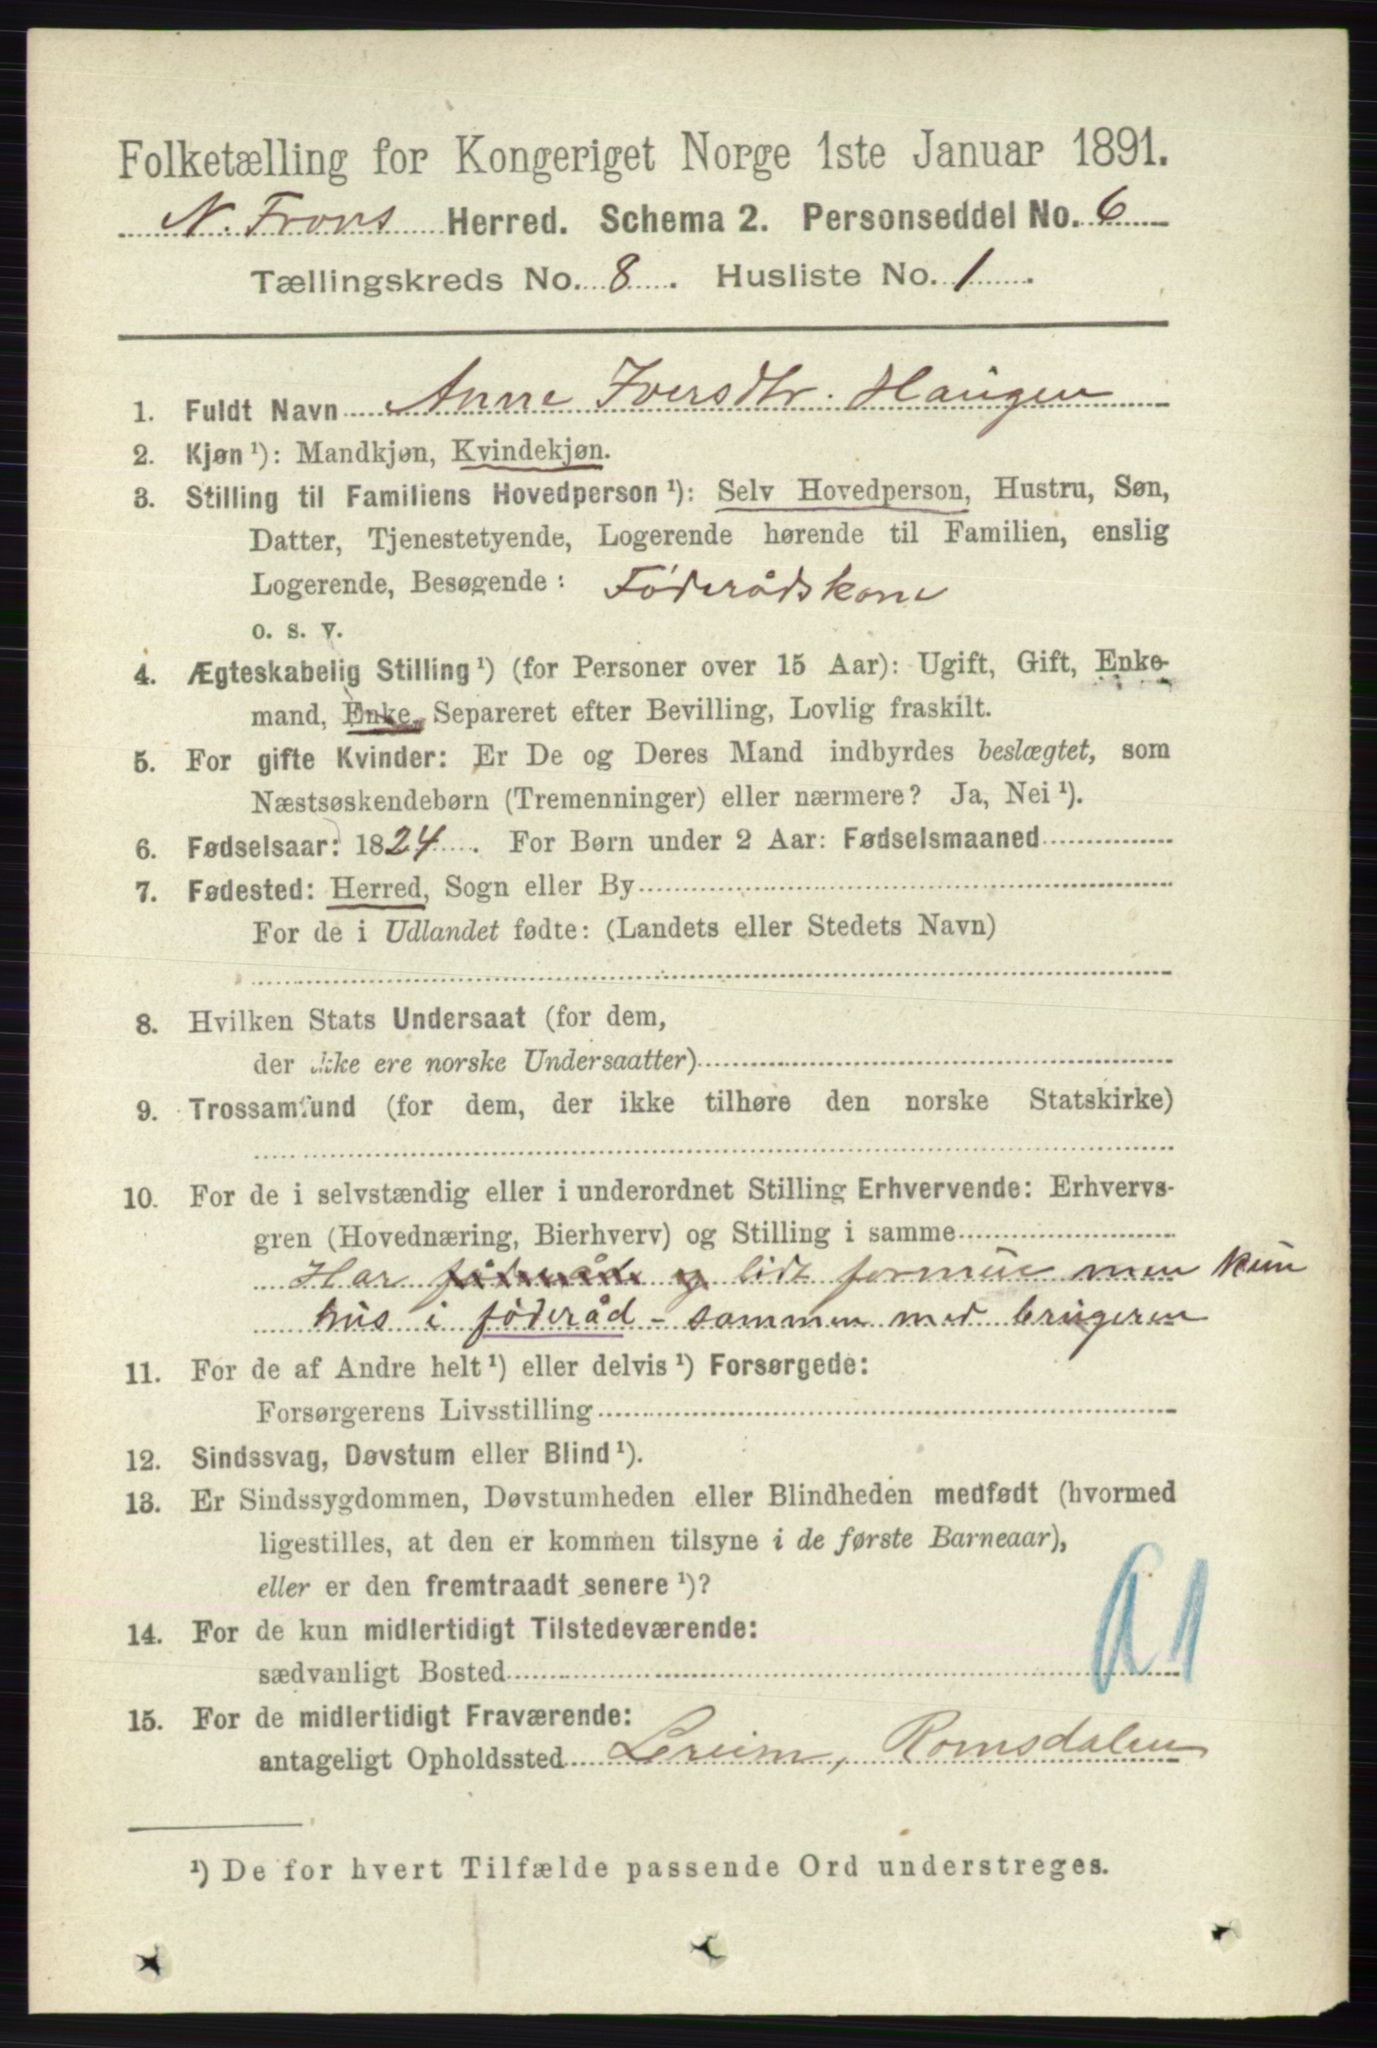 Folketælling for Kongeriget Norge 1ste Januar 1891.
N. Frons Herred. Schema 2. Personseddel No. 6
Tællingskreds No. 8. Husliste No. 1.
1. Fuldt Navn Anne Iversdtr. Haugen
2. Kjøn ¹): Mandkjøn, Kvindekjøn.
3. Stilling til Familiens Hovedperson ¹): Selv Hovedperson, Hustru, Søn,
Datter, Tjenestetyende, Logerende hørende til Familien, enslig
Logerende, Besøgende: Føderådskone
o. s. v.
4. Ægteskabelig Stilling ¹) (for Personer over 15 Aar): Ugift, Gift, Enke-
mand, Enke, Separeret efter Bevilling, Lovlig fraskilt.
5. For gifte Kvinder: Er De og Deres Mand indbyrdes beslægtet, som
Næstsøskendebørn (Tremenninger) eller nærmere? Ja, Nei ¹).
6. Fødselsaar: 1824. For Børn under 2 Aar: Fødselsmaaned
7. Fødested: Herred, Sogn eller By
For de i Udlandet fødte: (Landets eller Stedets Navn)
8. Hvilken Stats Undersaat (for dem,
der ikke ere norske Undersaatter)
9. Trossamfund (for dem, der ikke tilhøre den norske Statskirke)
10. For de i selvstændig eller i underordnet Stilling Erhvervende: Erhvervs-
gren (Hovednæring, Bierhverv) og Stilling i samme
Har føderåd og lidt formue men kun
hus i føderåd - sammen med brugeren
11. For de af Andre helt ¹) eller delvis ¹) Forsørgede:
Forsørgerens Livsstilling
12. Sindssvag, Døvstum eller Blind ¹).
13. Er Sindssygdommen, Døvstumheden eller Blindheden medfødt (hvormed
ligestilles, at den er kommen tilsyne i de første Barneaar),
eller er den fremtraadt senere ¹)?
14. For de kun midlertidigt Tilstedeværende:
sædvanligt Bosted
15. For de midlertidigt Fraværende:
antageligt Opholdssted Romsdalen
¹) De for hvert Tilfælde passende Ord understreges.